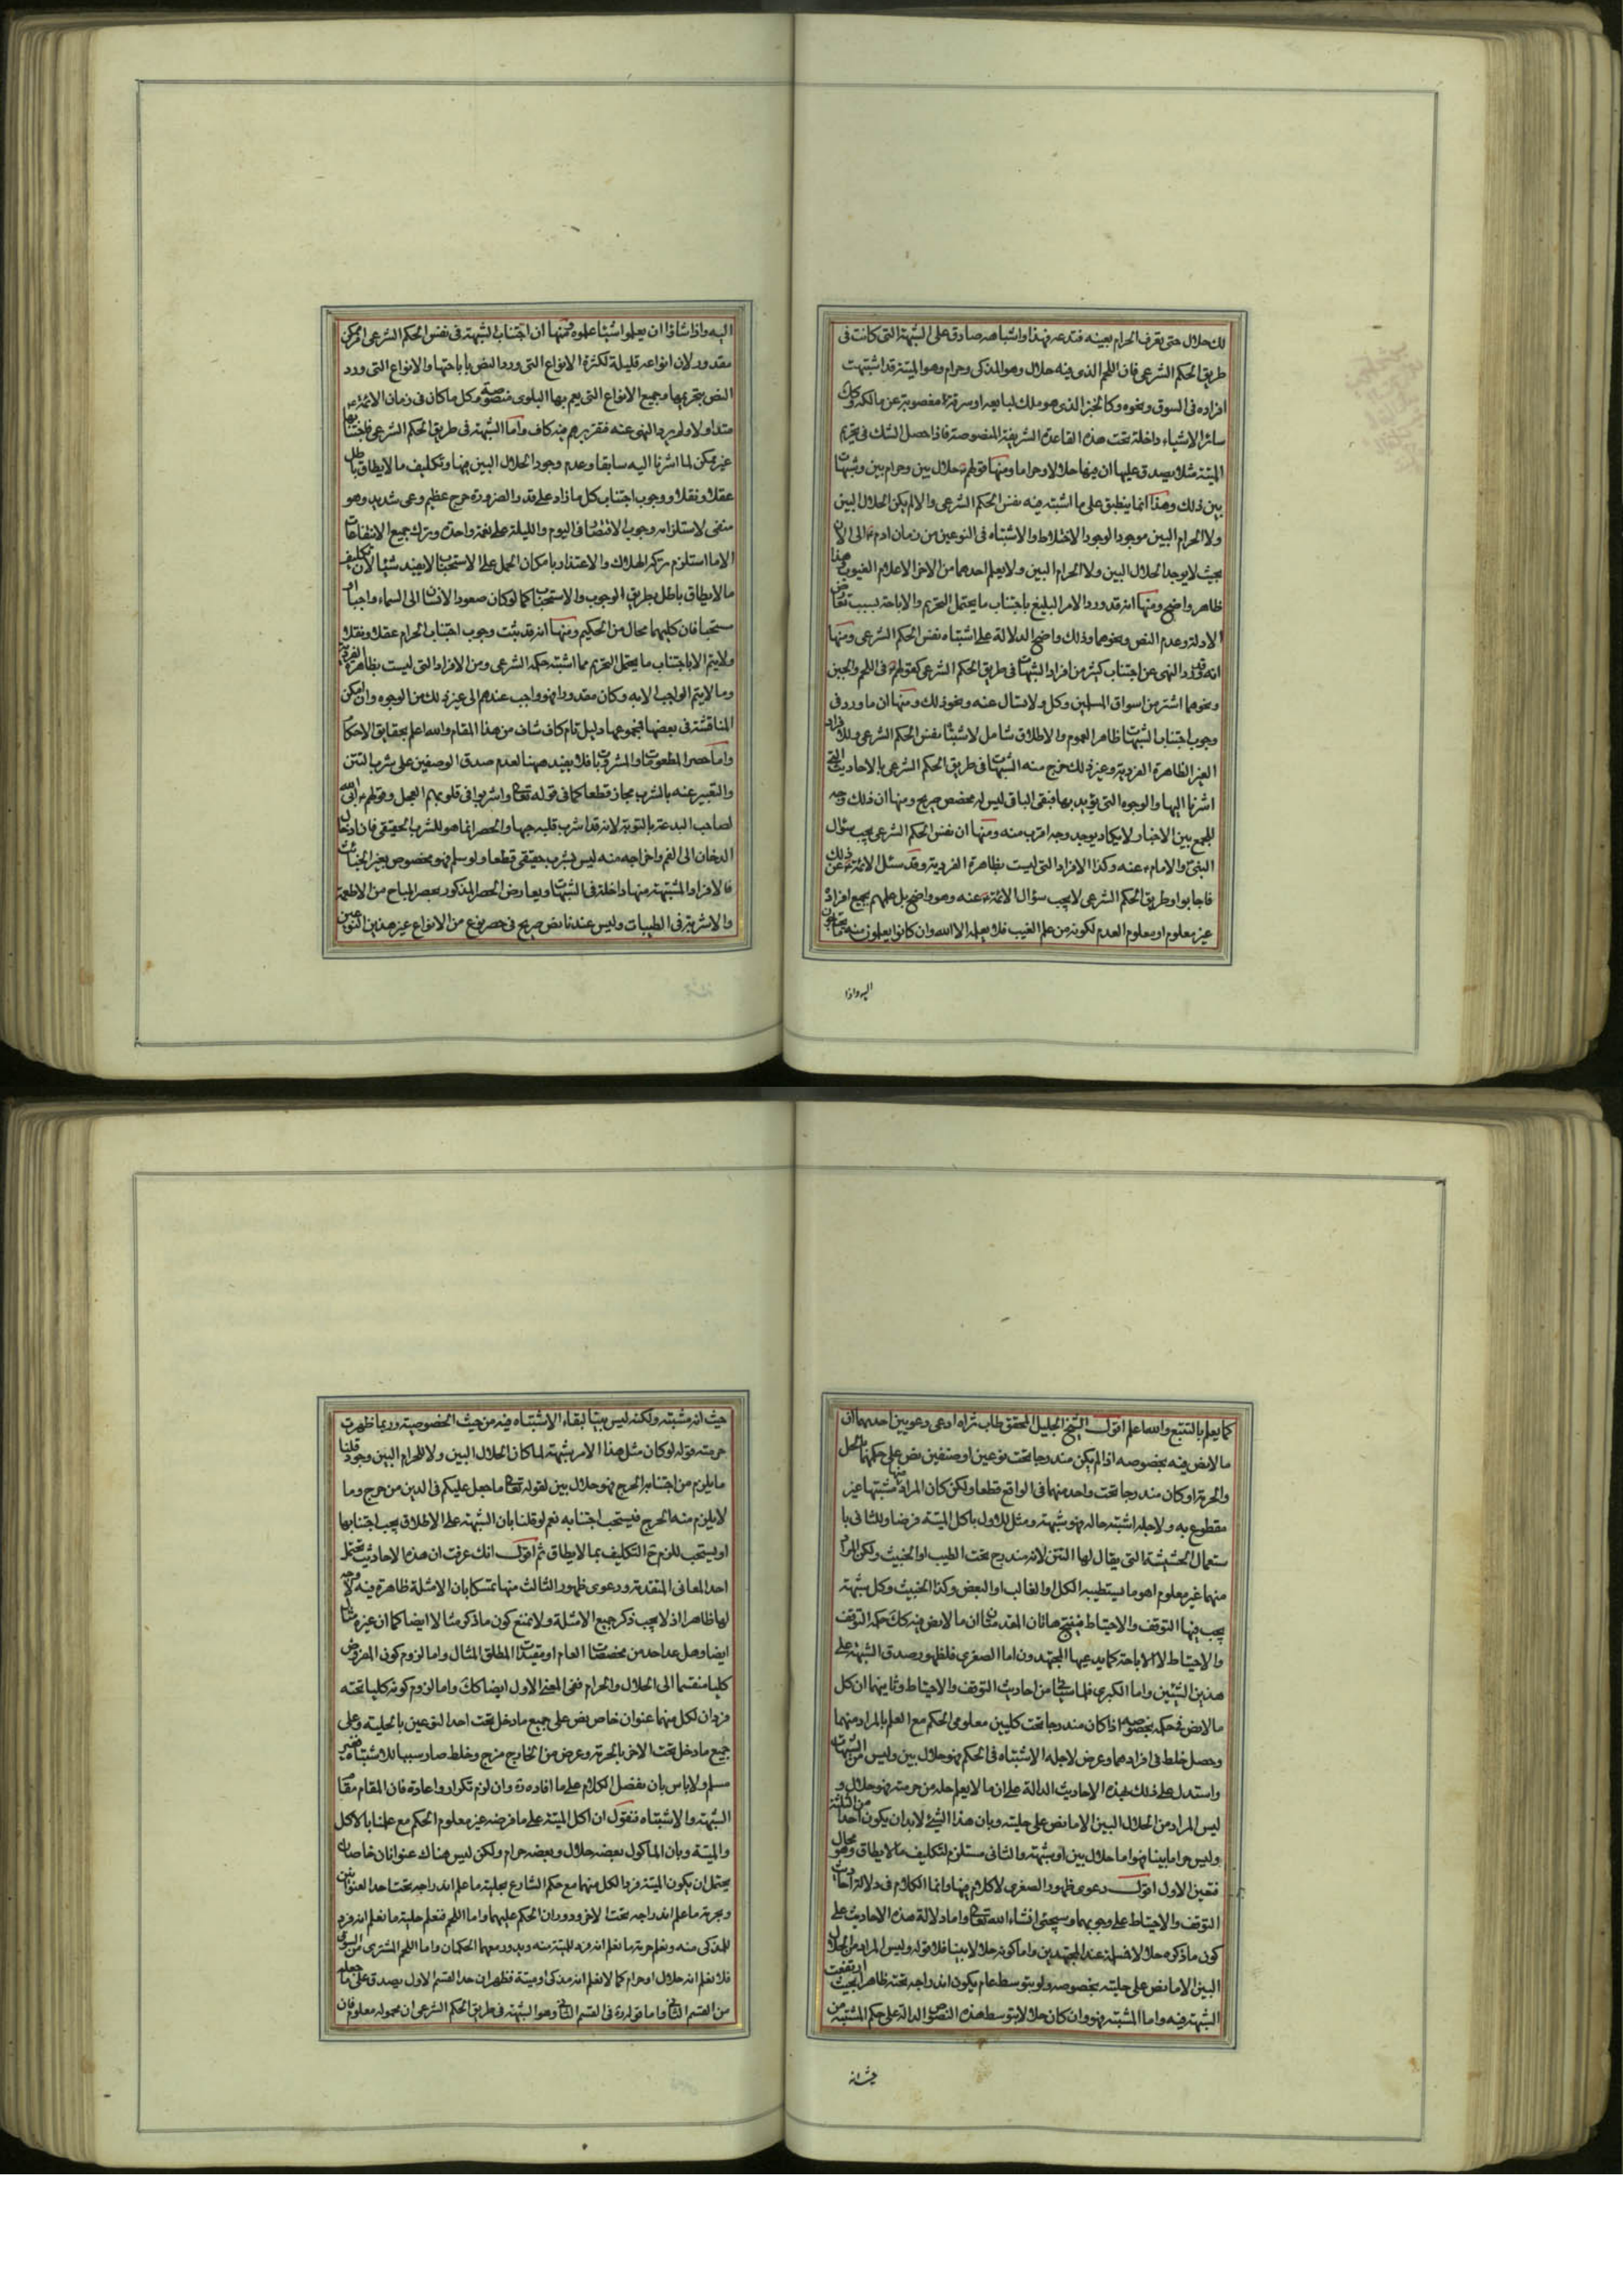 لك حلال حتى تعرف الحرام بعينه فتدعه فهذا واشباهه صادق على الشبهة التى كانت فى
طريق الحكم الشرعى فان اللحم الذى فيه حلال وهو المذكى وحرام وهو الميتة قد اشتبهت
افراده فى السوق ونحوه وكالخبز الذى هو ملك لبايعه او سرقة او مغصوبة عن مالكه وكك
سائر الاشياء داخلة تحت هذه القاعدة الشريفة المنصوصة فاذا حصل الشك فى تحريم
الميتة مثلا يصدق عليها ان فيها حلالا وحراما ومنها قولهم حلال بين وحرام بين وشبهات
بين ذلك وهذا انما ينطبق على ما اشتبه فيه نفس الحكم الشرعى والا لم يكن الحلال البين
ولا الحرام البين موجودا لوجود الاختلاط والاشتباه فى النوعين من زمان ادم الى الان
بحيث لا يوجد الحلال البين ولا الحرام البين ولا يعلم احدهما من الاخر الا علام الغيوب وهذا
ظاهر واضح ومنها انه قد ورد الامر البليغ باجتناب ما يحتمل التحريم والاباحة بسبب تعارض
الادلة وعدم النص ونحوهما وذلك واضح الدلالة على اشتباه نفس الحكم الشرعى ومنها
انه قد ورد النهى عن اجتناب كثير من افراد الشبهات فى طريق الحكم الشرعى كقولهم فى اللحم والجبن
ونحوهما اشتر من اسواق المسلمين وكل ولا تسال عنه ونحو ذلك ومنها ان ما ورد فى
وجوب اجتناب الشبهات ظاهر العموم والاطلاق شامل لاشتباه نفس الحكم الشرعى وللافراد
الغير الظاهرة الفردية وغير ذلك خرج منه الشبهات فى طريق الحكم الشرعى بالاحاديث التى
اشرنا اليها والوجوه التى نؤيد بها فبقى الباقى ليس له مخصص صريح ومنها ان ذلك وجه
للجمع بين الاخبار ولا يكاد يوجد وجه اقرب منه ومنها ان نفس الحكم الشرعى يجب سؤال
النبى والامام عنه وكذا الافراد التى ليست بظاهرة الفردية وقد سئل الائمة عن ذلك
فاجابوا وطريق الحكم الشرعى لا يجب سؤال الائمة عنه وهو واضح بل علمهم بجميع افراده
غير معلوم او معلوم العدم لكونه من علم الغيب فلا يعلمه الا الله وان كانوا يعلمون منه ما يحتاجون
اليه واذا
اليه واذا شاؤا ان يعلموا شيئا علموه ومنها ان اجتناب الشبهة فى نفس الحكم الشرعى امر ممكن
مقدور لان انواعه قليلة لكثرة الانواع التى ورد النص باباحتها والانواع التى ورد
النص بتحريمها وجميع الانواع التى يعم بها البلوى منصوصة وكل ما كان فى زمان الائمة
متداولا ولم يرد النهى عنه فتقريرهم فيه كاف واما الشبهة فى طريق الحكم الشرعى فاجتنابها
غير ممكن لما اشرنا اليه سابقا وعدم وجود الحلال البين فيها وتكليف ما لا يطاق باطل
عقلا ونقلا ووجوب اجتناب كل ما زاد على قدر الضرورة حرج عظيم وعسر شديد وهو
منفى لاستلزامه وجوب الاقتصار فى اليوم والليلة على لقمة واحدة وترك جميع الانتفاعات
الا ما استلزم تركه الهلاك والاعتذار بامكان الحمل على الاستحباب لا يفيد شيئا لان تكليف
ما لا يطاق باطل بطريق الوجوب والاستحباب كما لو كان صعود الانسان الى السماء واجبا او
مستحبا فان كليهما محال من الحكيم ومنها انه قد ثبت وجوب اجتناب الحرام عقلا ونقلا
ولا يتم الا باجتناب ما يحتمل التحريم مما اشتبه حكمه الشرعى ومن الافراد التى ليست بظاهرة الفردية
وما لا يتم الواجب الا به وكان مقدورا فهو واجب عندهم الى غير ذلك من الوجوه وان امكن
المناقشة فى بعضها فمجموعها دليل تام كاف شاف من هذا المقام والله اعلم بحقايق الاحكام
واما حصر المطعومات والمشروبات فلا يفيد ههنا لعدم صدق الوصفين على شرب التتن
والتعبير عنه بالشرب مجاز قطعا كما فى قوله تعالى واشربوا فى قلوبهم العجل وقولهم ابى الله
لصاحب البدعة بالتوبة لانه قد اشرب قلبه حبها والحصر انما هو للشرب الحقيقى فان ادخال
الدخان الى الفم واخراجه منه ليس بشرب حقيقى قطعا ولو سلم فهو مخصوص بغير الخبائث
فالافراد المشتبهة منها داخلة فى الشبهات ويعارض الحصر المذكور بحصر المباح من الاطعمة
والاشربة فى الطيبات وليس عندنا نص صريح فى حصر نوع من الانواع غير هذين النوعين
كما يعلم بالتتبع والله اعلم اقول الشيخ الجليل المحقق طاب ثراه ادعى دعويين احدهما ان
ما لا نص فيه بخصوصه اذا لم يكن مندرجا تحت نوعين او صنفين نص على حكمهما بالحل
والحرمة او كان مندرجا تحت واحد منهما فى الواقع قطعا ولكن كان المراد منها مشتبها غير
مقطوع به ولاجله اشتبه حاله فهو شبهة ومثل للاول باكل الميتة فرضا وللثانى با
ستعمال الحشيشة التى يقال لها التتن لانه مندرج تحت الطيب او الخبيث ولكن المراد
منهما غير معلوم اهو ما يستطيبه الكل او الغالب او البعض وكذا الخبيث وكل شبهة
يجب فيها التوقف والاحتياط فينتج هاتان المقدمتان ان ما لا نص فيه كك حكمه التوقف
والاحتياط لا الاباحة كما يدعيها المجتهدون اما الصغرى فلظهور صدق الشبهة على
هذين الشيئين واما الكبرى فلما سيأتى من احاديث التوقف والاحتياط وثانيهما ان كل
ما لا نص فى حكمه بخصوصه اذا كان مندرجا تحت كليين معلومى الحكم مع العلم بالمراد منهما
وحصل خلط فى افرادهما وعرض لاجله الاشتباه فى الحكم فهو حلال بين وليس من الشبهات
واستدل على ذلك بهذه الاحاديث الدالة على ان ما لا يعلم حله من حرمته فهو حلال و
ليس المراد من الحلال البين الا ما نص على حليته وبان هذا الشئ لا بد ان يكون احدا من الثلثة
وليس حراما بينا فهو اما حلال بين او شبهة والثانى مستلزم لتكليف ما لا يطاق وهو محال
فتعين الاول اقول دعوى ظهور الصغرى لا كلام فيها وانما الكلام فى دلالة احاديث
التوقف والاحتياط على وجوبهما وسيجئ انشاء الله تعالى واما دلالة هذه الاحاديث على
كون ما ذكره حلالا فمسلمة عند المجتهدين واما كونه حلالا بينا فلا قوله وليس المراد من الحلال
البين الا ما نص على حليته بخصوصه ولو بتوسط عام يكون اندراجه تحته ظاهرا بحيث ارتفعت
الشبهة فيه واما المشتبه فهو وان كان حلالا بتوسط هذه النصوص الدالة على حكم المشتبه من
حيث انه
حيث انه مشتبه ولكنه ليس بينا لبقاء الاشتباه فيه من حيث الخصوصية وربما ظهرت
حرمته قوله لو كان مثل هذا الامر شبهة لما كان للحلال البين ولا للحرام البين وجود قلنا
ما يلزم من اجتنابه الحرج فهو حلال بين لقوله تعالى ما جعل عليكم فى الدين من حرج وما
لا يلزم منه الحرج فيستحب اجتنابه نعم لو قلنا بان الشبهة على الاطلاق يجب اجتنابها
او يستحب للزم ح التكليف بما لا يطاق ثم اقول انك عرفت ان هذه الاحاديث تحتمل
احد المعانى المتقدمة ودعوى ظهور الثالث منها تمسكا بان الامثلة ظاهرة فيه لا وجه
لها ظاهرا اذ لا يجب ذكر جميع الامثلة ولا نمنع كون ما ذكر مثالا ايضا كما ان غيره مثال
ايضا وهل عد احد من مخصصات العام او مقيدات المطلق المثال واما لزوم كون المفروض
كليا منقسما الى الحلال والحرام ففى المعنى الاول ايضا كك واما لزوم كونه كليا تحته
فردان لكل منهما عنوان خاص نص على جميع ما دخل تحت احد النوعين بالحلية وعلى
جميع ما دخل تحت الاخر بالحرمة وعرض من الخارج مزج وخلط صار سببا للاشتباه فغير
مسلم ولا باس بان نفصل الكلام على ما افاده ره وان لزم تكرار واعادة فان المقام مقام
الشبهة والاشتباه فنقول ان اكل الميتة على ما فرضه غير معلوم الحكم مع علمنا بالاكل
والميتة وبان الماكول بعضه حلال وبعضه حرام ولكن ليس هناك عنوانان خاصان
يحتمل ان يكون الميتة فردا لكل منهما مع حكم الشارع بحلية ما علم اندراجه تحت احد العنوانين
وبحرمة ما علم اندراجه تحت الاخر ودوران الحكم عليهما واما اللحم فنعلم حلية ما نعلم انه فرد
للمذكى منه ونعلم حرمة ما نعلم انه فرد للميتة منه ويدور معهما الحكمان واما اللحم المشترى من السوق
فلا نعلم انه حلال او حرام كما لا نعلم انه مذكى او ميتة فظهر ان حد القسم الاول يصدق على ما جعله
من القسم الثانى واما قوله ره فى القسم الثانى وهو الشبهة فى طريق الحكم الشرعى ان محموله معلوم فان